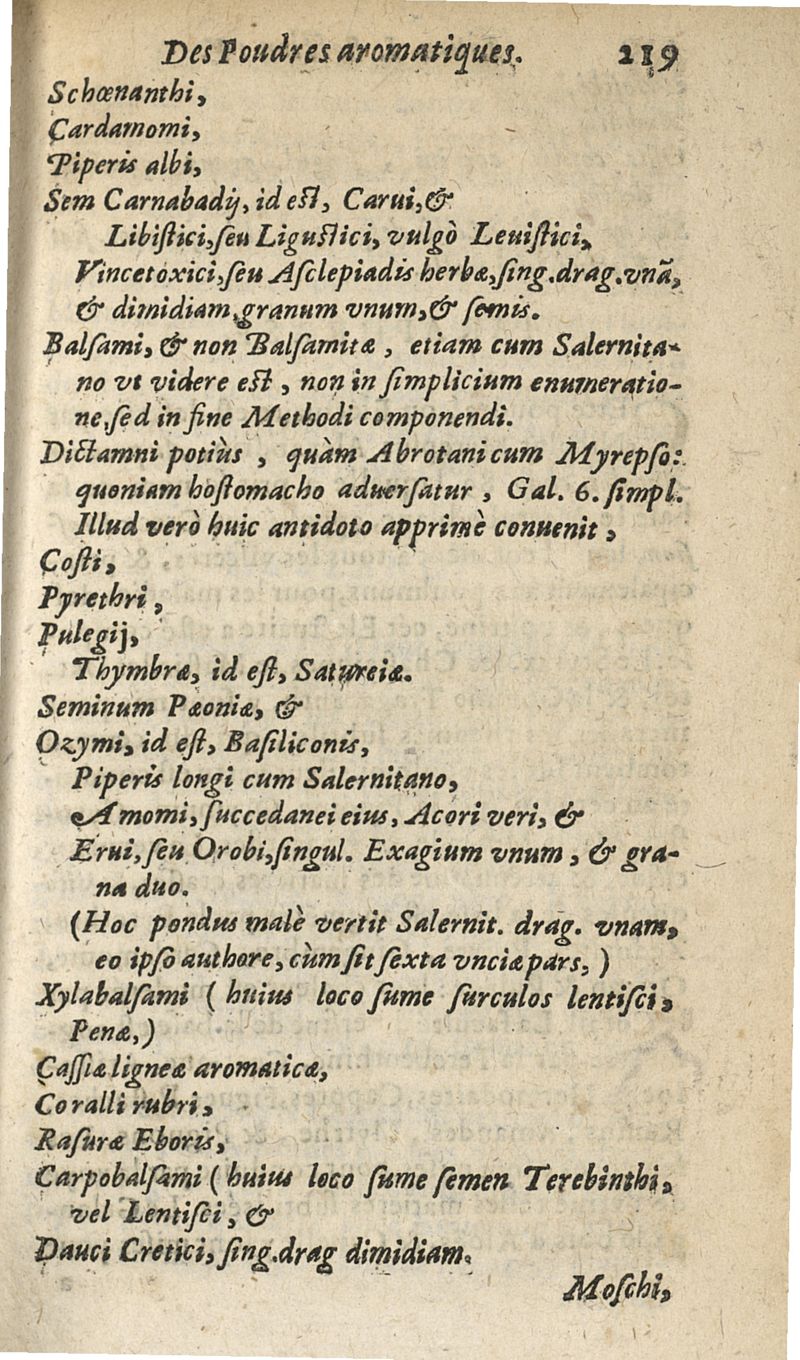 Des Poudres aromatiques. 219
Schœnanthi,
Cardamomi,
Piperis albi,
Sem Carnabadij, id est, Carui, &
Libiſtici, ſeu Liguſtici, vulgò Leuiſtici,
Vincetoxici, ſeu Aſclepiadis herbæ, ſing. drag. vnã,
& dimidiam, granum vnum, & ſemis.
Balſami, & non Balſamitæ, etiam cum Salernita-
no vt videre est, non in ſimplicium enumeratio-
ne, ſed in fine Methodi componendi.
Dictamni potiùs, quàm Abrotani cum Myrepſo:
quoniam hoſtomacho aduerſatur, Gal. 6. ſimpl.
Illud verò huic antidoto apprimè conuenit,
Coſti,
Pyrethri,
Pulegij,
Thymbræ, id eſt, Satureiæ.
Seminum Pæoniæ, &
Ozymi, id eſt, Baſiliconis,
Piperis longi cum Salernitano,
Amomi, ſuccedanei eius, Acori veri, &
Erui, ſeu Orobi, ſingul. Exagium vnum, & gra-
na duo.
(Hoc pondus malè vertit Salernit. drag. vnam,
eo ipſo authore, cùm ſit ſexta vnciæ pars, )
Xylabalſami ( huius loco ſume ſurculos lentiſci,
Penæ,)
Caſſiæ ligneæ aromaticæ,
Coralli rubri,
Raſuræ Eboris,
Carpobalſami ( huius loco ſume ſemen Terebinthi,
vel Lentiſci, &
Dauci Cretici, ſing. drag dimidiam.
Moſchi,